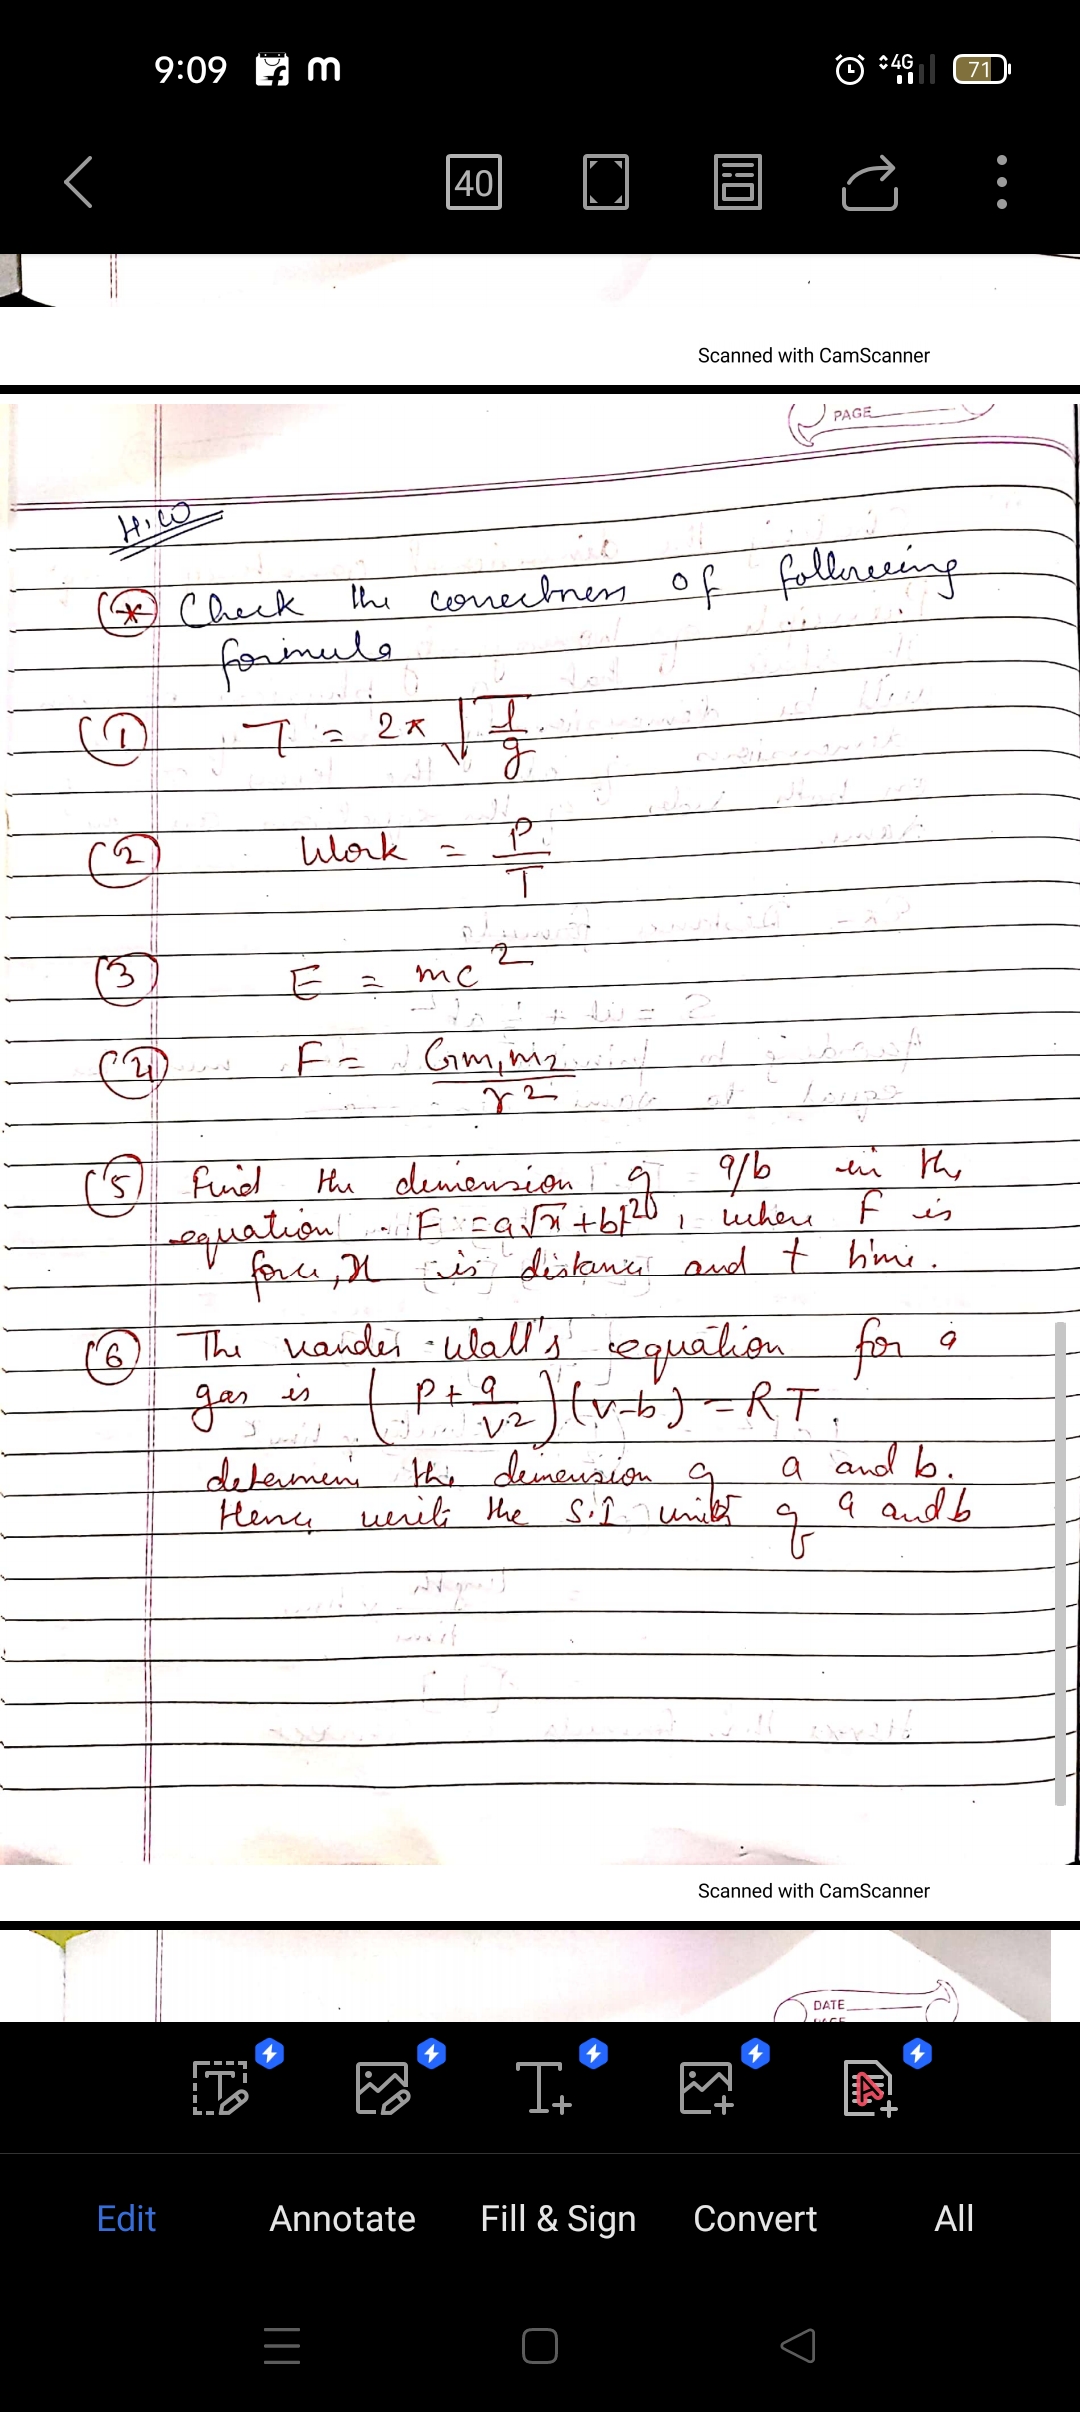 9:09 m 4G 71
40
Scanned with CamScanner
PAGE
H.W
(*) Check the correctness of following
formula
(1) T = 2π √(l/g)
(2) Work = P/T
(3) E = mc²
(4) F = Gm₁m₂/r²
(5) Find the dimension of a/b in the
equation F = a√x + bt², where F is
force, x is distance and t time.
(6) The vander-Wall's equation for a
gas is (P + a/v²)(v-b) = RT.
determine the dimension of a and b.
Hence write the S.I units of a and b
Scanned with CamScanner
DATE
Edit Annotate Fill & Sign Convert All